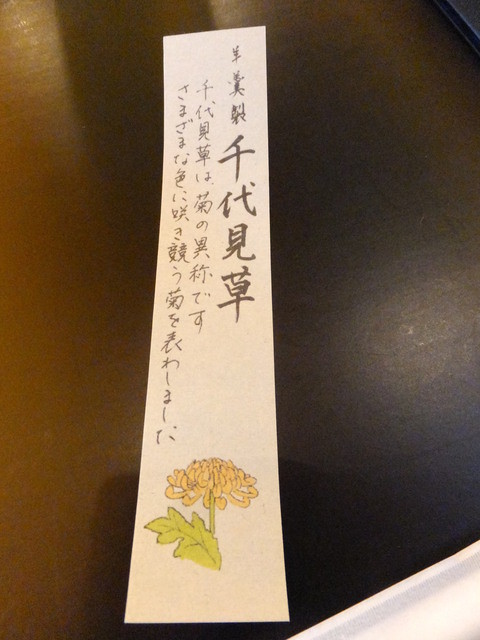 羊羹製 千代見草
千代見草は、菊の異称です
さまざまな色に咲き競う菊を表わしました